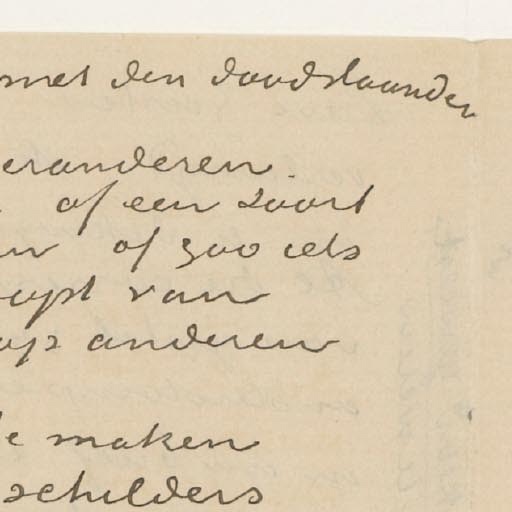 met den doodslaander
eranderen.
of een soort
en of zoo iets
oept van
op anderen
te maken
schilders